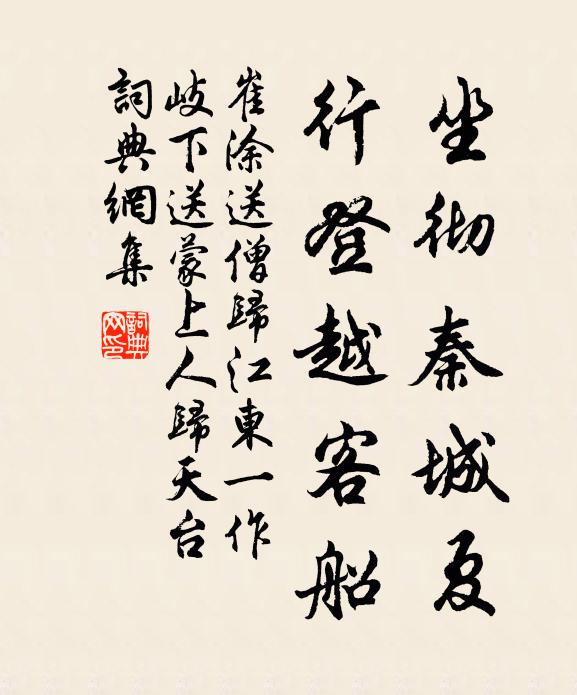 坐彻秦城夏
行登越客船
崔涂送僧歸江東一作
岐下送蒙上人歸天台
詞典網集
詞典网印